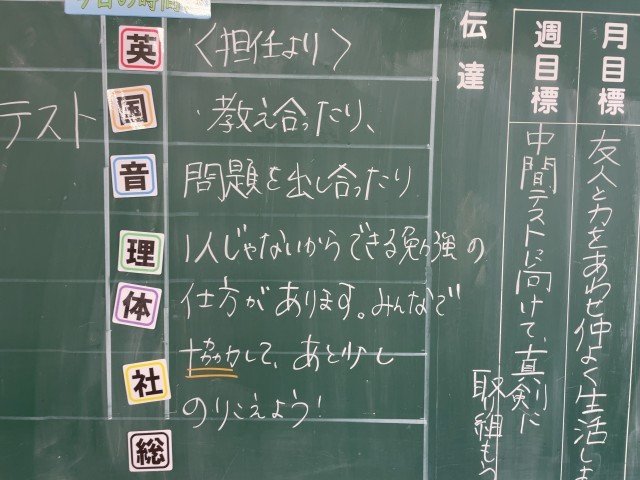 今日の時間
英
国
音
理
体
社
総
テスト
〈担任より〉
・教え合ったり、
問題を出し合ったり
1人じゃないからできる勉強の
仕方があります。みんなで
協力して、あと少し
のりこえよう!
伝達
週目標
中間テストに向けて、真剣に
取り組もう
月目標
友人と力をあわせ仲よく生活しま